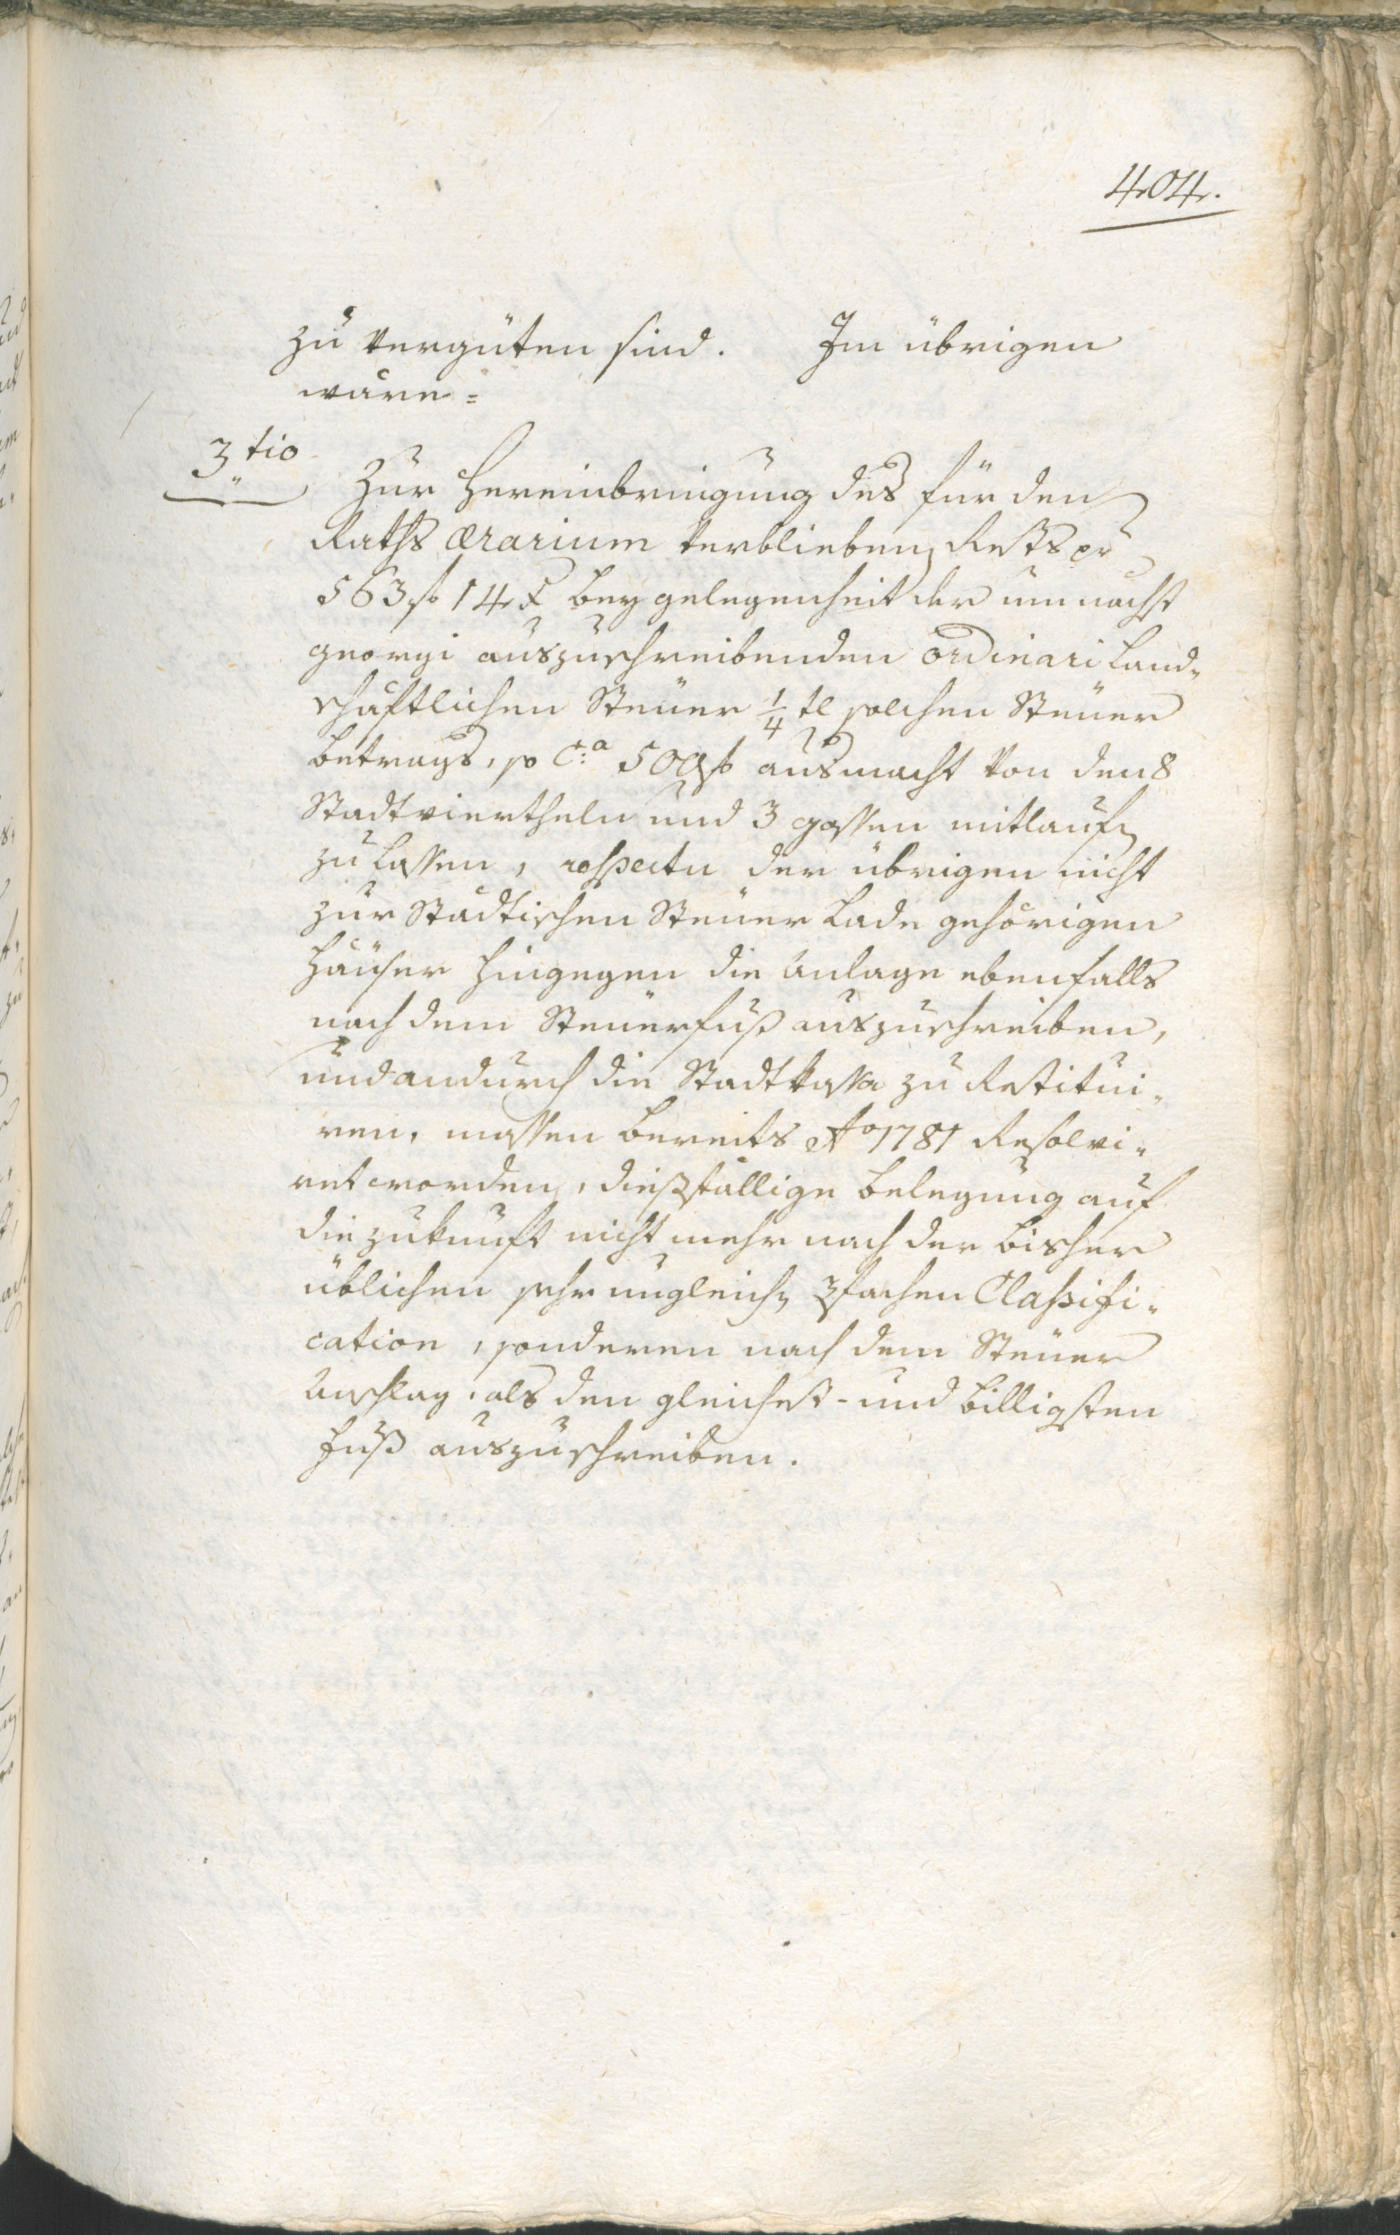 404.
zu vergüten sind. Im übrigen
wäre =
3tio
Zur Hereinbringung des für den
Raths Ærarium verblieben Rests pr
563 f 14 x bey gelegenheit der um nächst
georgi auszuschreibenden ordinari Land-
schäftlichen Steuer 1/4 tl solchen Steuer
betrags, so Ca 500 f ausmacht von den 8
Stadtviertheln und 3 gassen mitlaufen
zu lassen, respectu der übrigen nicht
zur Städtischen Steuer Lade gehörigen
Häuser hingegen die Anlage ebenfalls
nach dem Steuerfuß auszuschreiben,
und andurch die Stadtkassa zu Restitui-
ren, massen bereits Ao 1781 Resolvi-
ret worden, dießfällige Belegung auf
die zukunft nicht mehr nach der bisher
üblichen sehr ungleichen 3fachen Classifi-
cation, sonderen nach dem Steuer
Anschlag, als den gleichest- und billigsten
fuß auszuschreiben.